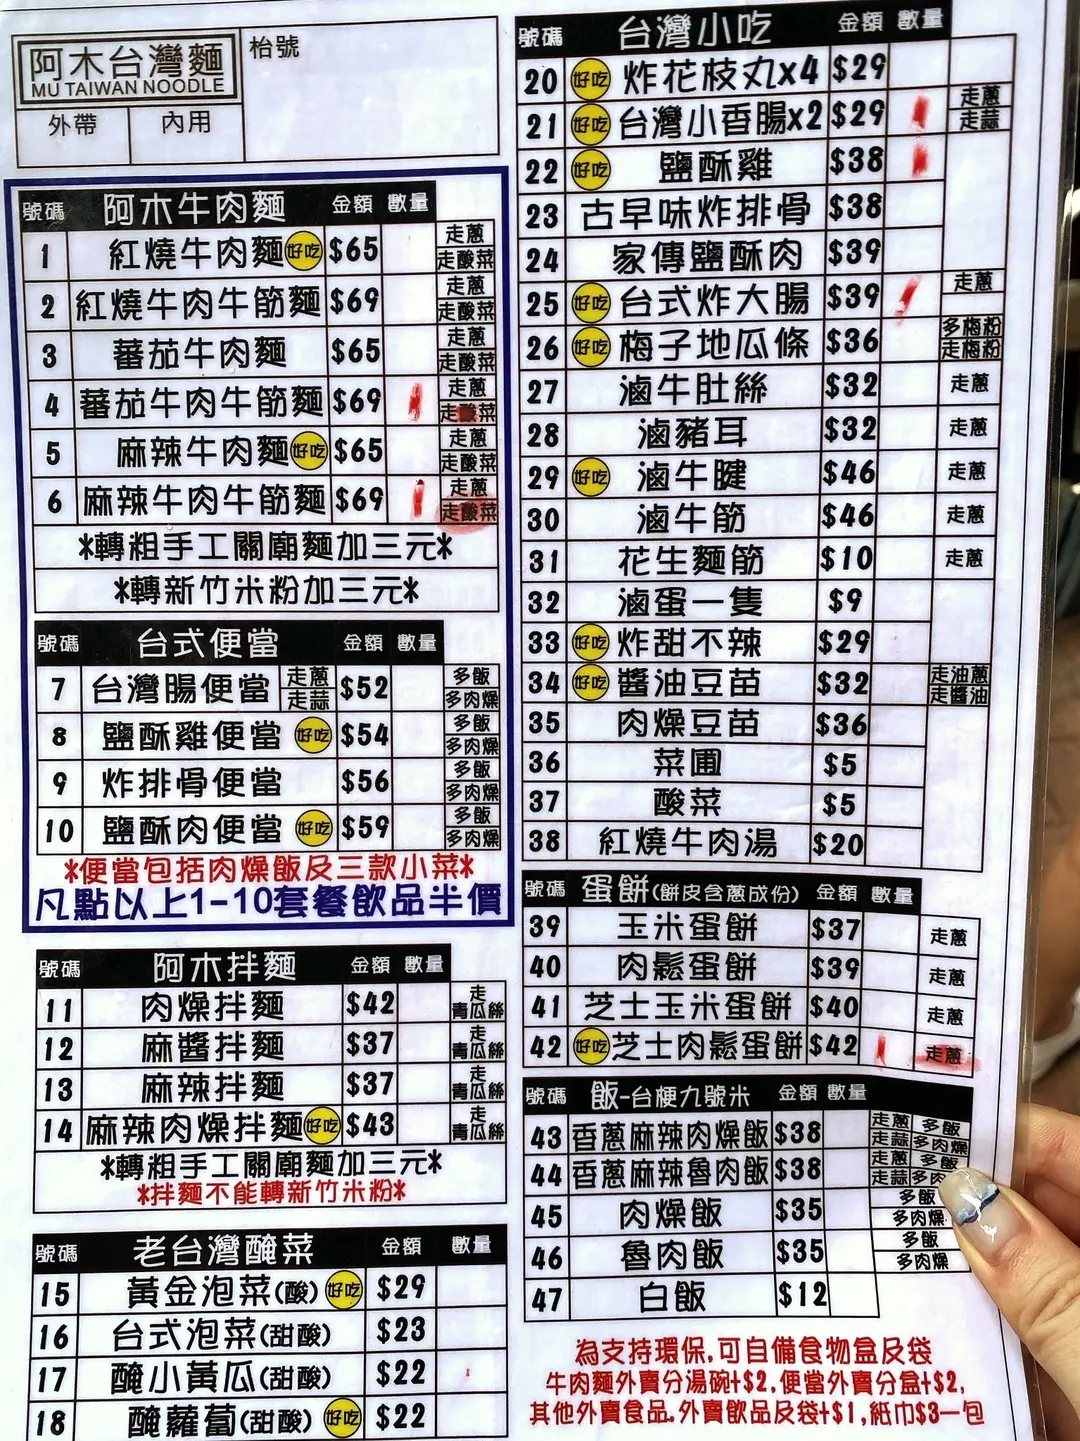 阿木台灣麵
MU TAIWAN NOODLE
枱號
外帶 內用
號碼 阿木牛肉麵 金額 數量
1 紅燒牛肉麵 好吃 $65 走蔥 走酸菜
2 紅燒牛肉牛筋麵 $69 走蔥 走酸菜
3 蕃茄牛肉麵 $65 走蔥 走酸菜
4 蕃茄牛肉牛筋麵 $69 走蔥 走酸菜
5 麻辣牛肉麵 好吃 $65 走蔥 走酸菜
6 麻辣牛肉牛筋麵 $69 走蔥 走酸菜
*轉粗手工關廟麵加三元*
*轉新竹米粉加三元*
號碼 台式便當 金額 數量
7 台灣腸便當 走蔥 走蒜 $52 多飯 多肉燥
8 鹽酥雞便當 好吃 $54 多飯 多肉燥
9 炸排骨便當 $56 多飯 多肉燥
10 鹽酥肉便當 好吃 $59 多飯 多肉燥
*便當包括肉燥飯及三款小菜*
凡點以上1-10套餐飲品半價
號碼 阿木拌麵 金額 數量
11 肉燥拌麵 $42 走青瓜絲
12 麻醬拌麵 $37 走青瓜絲
13 麻辣拌麵 $37 走青瓜絲
14 麻辣肉燥拌麵 好吃 $43 走青瓜絲
*轉粗手工關廟麵加三元*
*拌麵不能轉新竹米粉*
號碼 老台灣醃菜 金額 數量
15 黃金泡菜(酸) 好吃 $29
16 台式泡菜(甜酸) $23
17 醃小黃瓜(甜酸) $22
18 醃蘿蔔(甜酸) 好吃 $22
號碼 台灣小吃 金額 數量
20 好吃 炸花枝丸x4 $29
21 好吃 台灣小香腸x2 $29 走蔥 走蒜
22 好吃 鹽酥雞 $38
23 古早味炸排骨 $38
24 家傳鹽酥肉 $39
25 好吃 台式炸大腸 $39 走蔥
26 好吃 梅子地瓜條 $36 多梅粉 走梅粉
27 滷牛肚絲 $32 走蔥
28 滷豬耳 $32 走蔥
29 好吃 滷牛腱 $46 走蔥
30 滷牛筋 $46 走蔥
31 花生麵筋 $10 走蔥
32 滷蛋一隻 $9
33 好吃 炸甜不辣 $29
34 好吃 醬油豆苗 $32 走油蔥 走醬油
35 肉燥豆苗 $36
36 菜圃 $5
37 酸菜 $5
38 紅燒牛肉湯 $20
號碼 蛋餅(餅皮含蔥成份) 金額 數量
39 玉米蛋餅 $37 走蔥
40 肉鬆蛋餅 $39 走蔥
41 芝士玉米蛋餅 $40 走蔥
42 好吃 芝士肉鬆蛋餅 $42 走蔥
號碼 飯-台梗九號米 金額 數量
43 香蔥麻辣肉燥飯 $38 走蔥 多飯 走蒜 多肉燥
44 香蔥麻辣魯肉飯 $38 走蔥 多飯 走蒜 多肉
45 肉燥飯 $35 多飯 多肉燥
46 魯肉飯 $35 多飯 多肉燥
47 白飯 $12
為支持環保,可自備食物盒及袋
牛肉麵外賣分湯碗+$2,便當外賣分盒+$2,
其他外賣食品,外賣飲品及袋+$1,紙巾$3一包